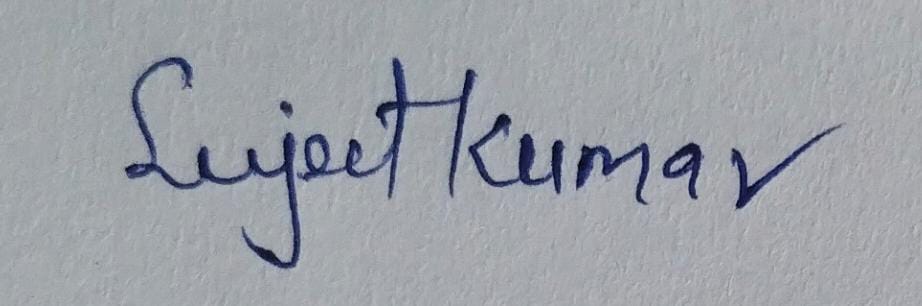 Sujeet Kumar